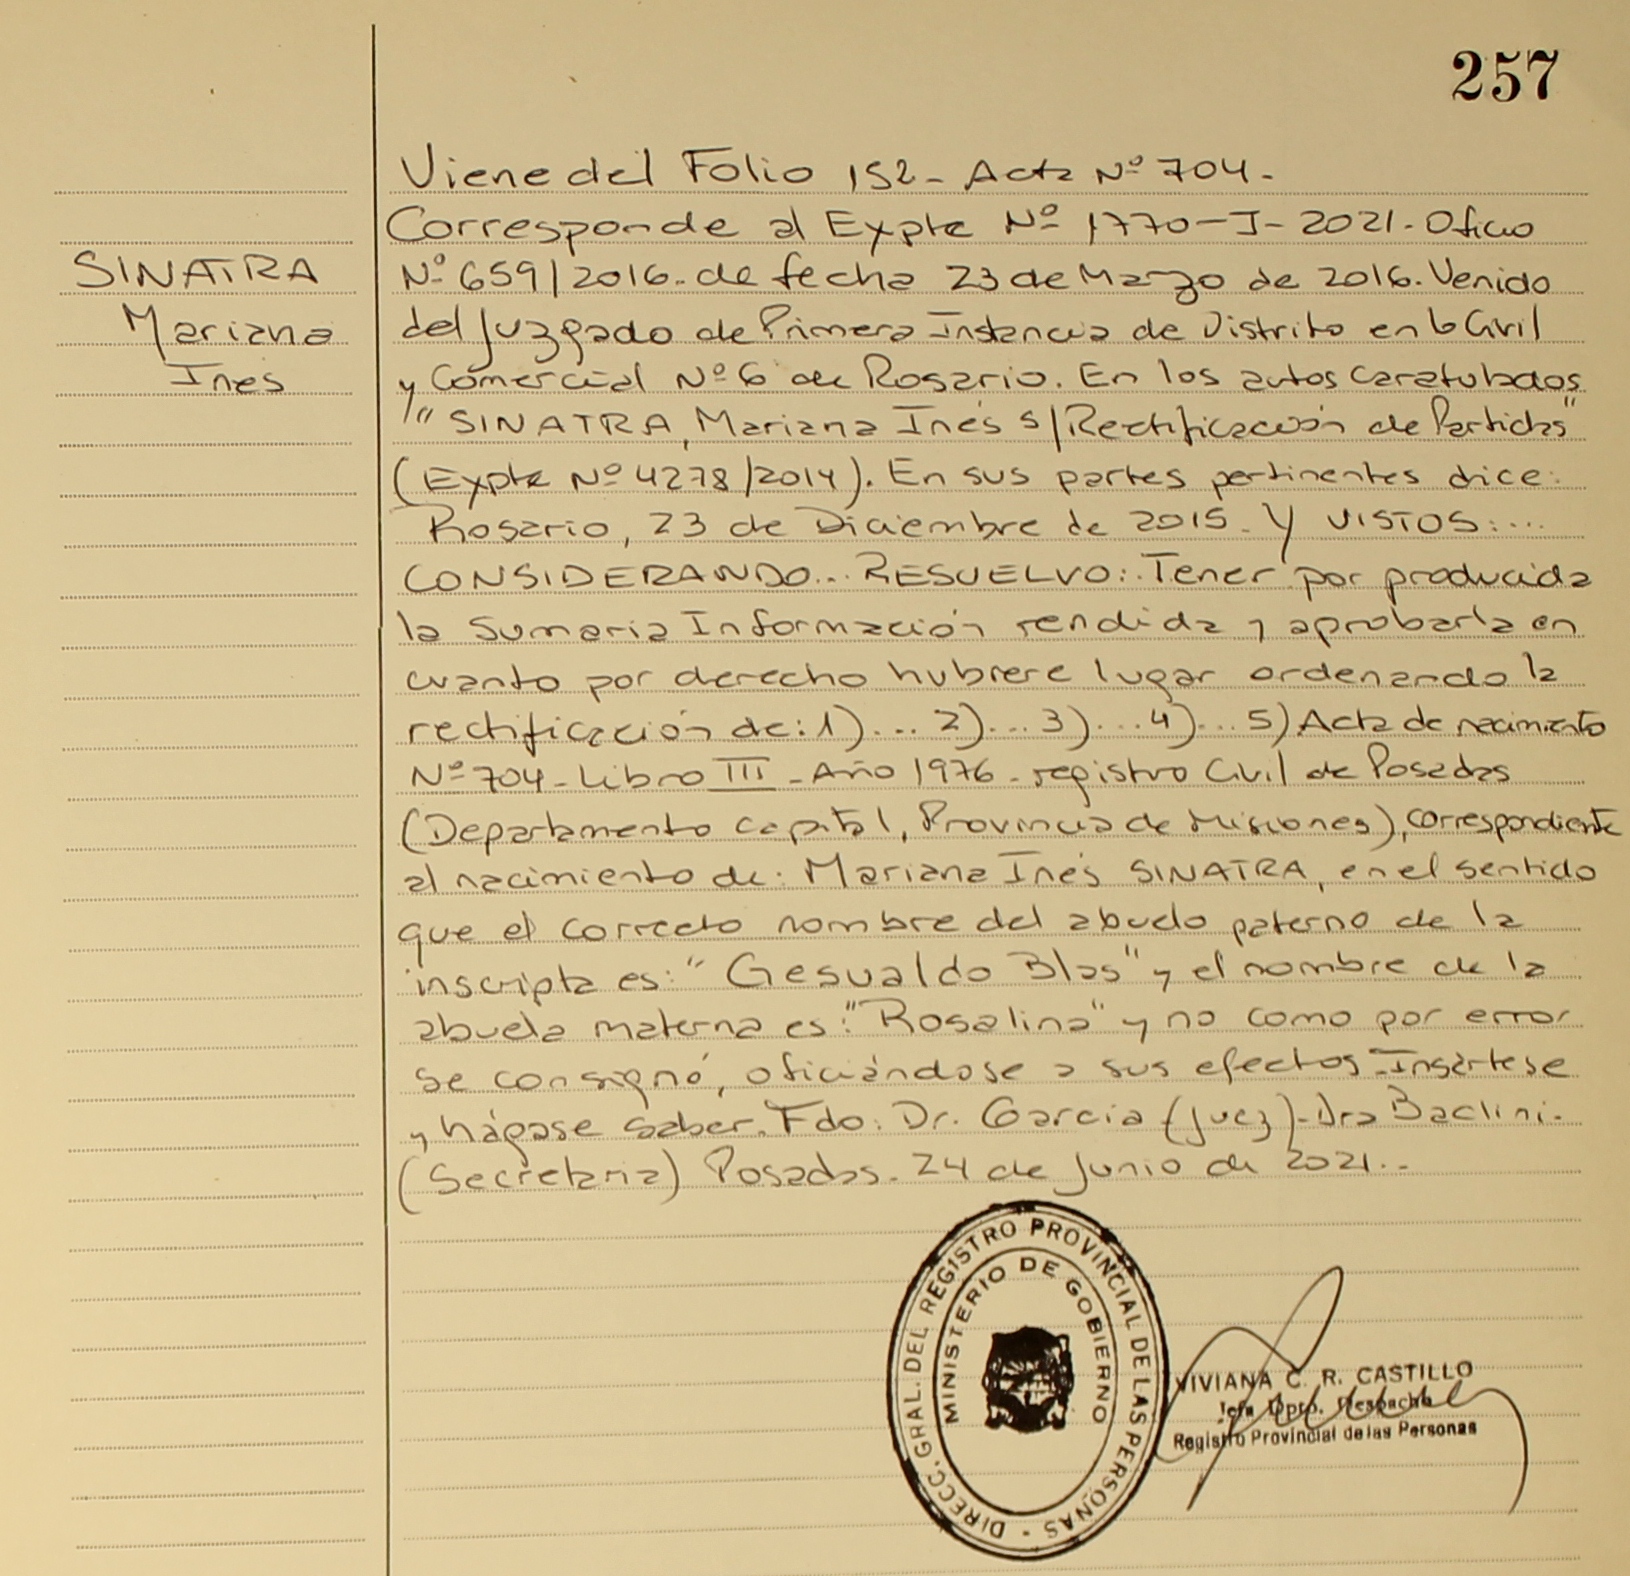 257
Viene del Folio 152- Acta Nº 704-
Corresponde al Expte Nº 1770-I-2021. Oficio
SINATRA
Nº 659/2016. de fecha 23 de Marzo de 2016. Venido
Mariana
del Juzgado de Primera Instancia de Distrito en lo Civil
Inés
y Comercial Nº 6 de Rosario. En los autos caratulados
"SINATRA, Mariana Inés s/Rectificación de Partidas"
(Expte Nº 4278/2014). En sus partes pertinentes dice:
Rosario, 23 de Diciembre de 2015. Y VISTOS:...
CONSIDERANDO... RESUELVO: Tener por producida
la Sumaria Información rendida y aprobarla en
cuanto por derecho hubiere lugar ordenando la
rectificación de: 1)... 2)... 3)... 4)... 5) Acta de nacimiento
Nº 704- Libro III - Año 1976- registro Civil de Posadas
(Departamento Capital, Provincia de Misiones), correspondiente
al nacimiento de: Mariana Inés SINATRA, en el sentido
que el correcto nombre del abuelo paterno de la
inscripta es: "Gesualdo Blas" y el nombre de la
abuela materna es: "Rosalina" y no como por error
se consignó, oficiándose a sus efectos. Insértese
y hágase saber. Fdo: Dr. García (Juez)- Dra Baclini-
(Secretaria) Posadas. 24 de Junio de 2021.-
DIRECC. GRAL. DEL REGISTRO PROVINCIAL DE LAS PERSONAS -
MINISTERIO DE GOBIERNO
VIVIANA C. R. CASTILLO
Jefa Dpto. Despacho
Registro Provincial de las Personas